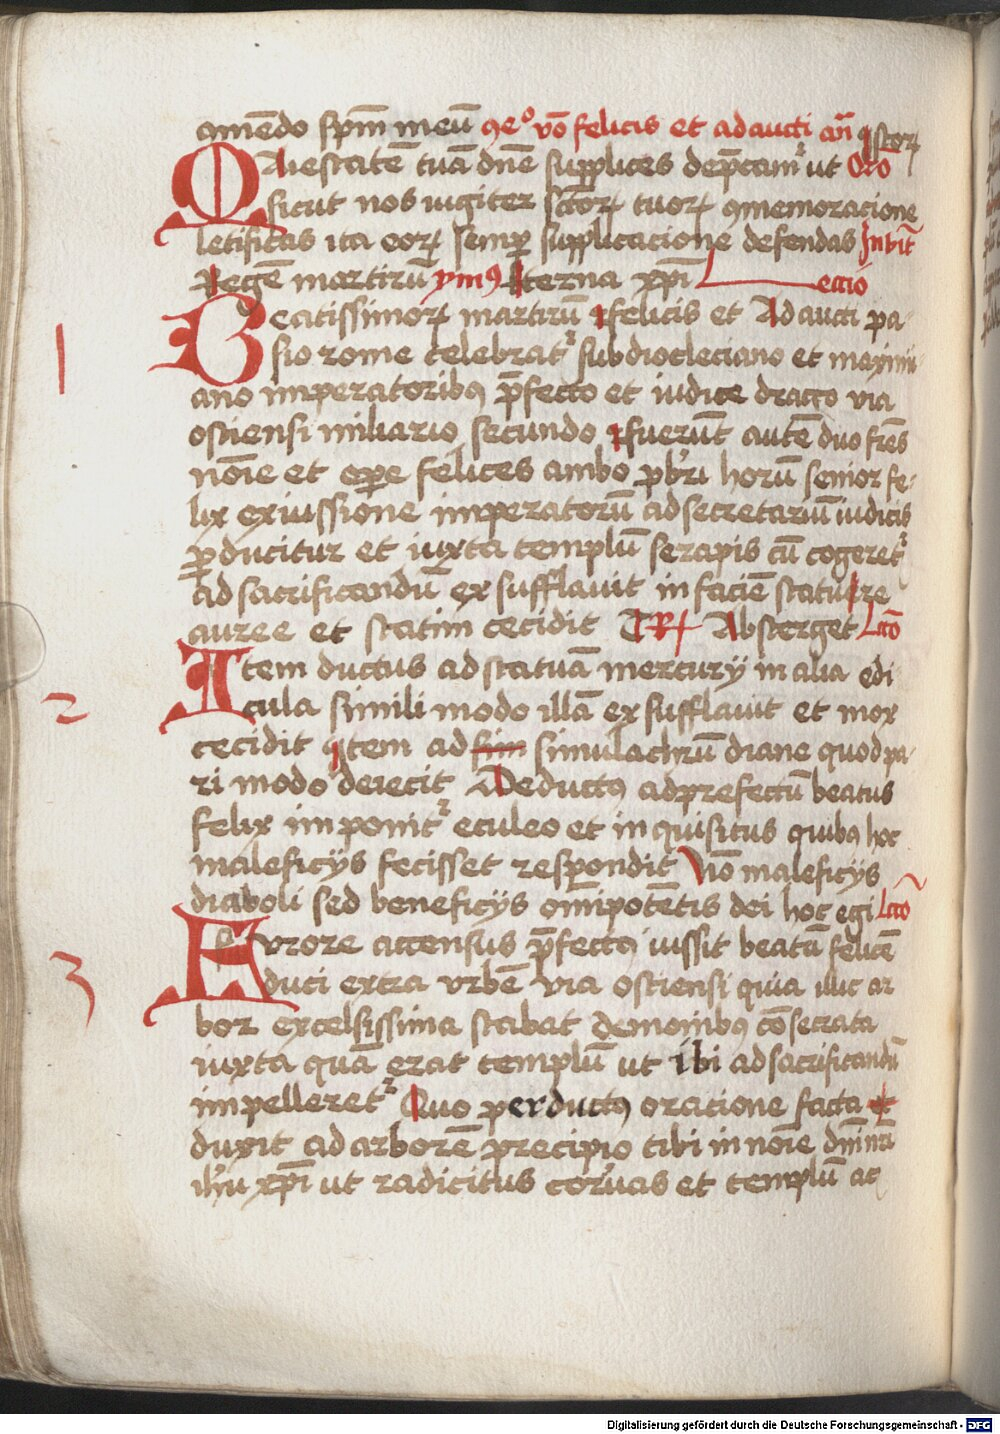 amēdo spm̄ meū ꝯeᵒ vō felicis et adaucti an̄ istorꝝ
Maiestatē tuā dn̄e supplices dep̄camʳ ut Orō
sicut nos iugiter sc̄torꝝ tuorꝝ ꝯmemoracione
letificas ita eorꝝ semꝑ supplicacione defendas Inbit̄
Regē martirū ymꝰ Eterna xp̄i Leccio
1
Beatissimorꝝ martirū felicis et Adaucti pa-
sio rome celebratʳ sub diocleciano et maximi-
ano imperatoribꝰ p̄fecto et iudice dracco via
ostiensi miliario secundo fuerūt autē duo fr̄es
noīe et oꝑe felices ambo pb̄ri horū senior fe-
lix ex iussione imperatorū ad secretariū iudicis
ꝑducitur et iuxta templū serapis cū cogeretʳ
ad sacrificandū exsufflauit in faciē statue re
auree et statim cecidit R Absterget Lc̄o
2
Item ductus ad statuā mercurij in alia edi-
cula simili modo illā exsufflauit et mox
cecidit item ad sim simulachrū diane quod pa-
ri modo deiecit Deductꝰ ad prefectū beatus
felix imponitʳ eculeo et inquisitus quibꝰ hoc
maleficijs fecisset respondit Nō maleficijs
diaboli sed beneficijs om̄ipotētis dei hoc egi Lc̄o
3
Furore accensus p̄fectꝰ iussit beatū felicē
duci extra vrbē via ostiensi quia illic ar
bor excelsissima stabat demonibꝰ cōsecrata
iuxta quā erat templū ut ibi ad sacrificandū
impelleretʳ Quo perductꝰ oracione facta et
duxit ad arborē precipio tibi in noīe dn̄i nr̄i
ih̄u xp̄i ut radicitus corruas et templū ac
Digitalisierung gefördert durch die Deutsche Forschungsgemeinschaft - DFG